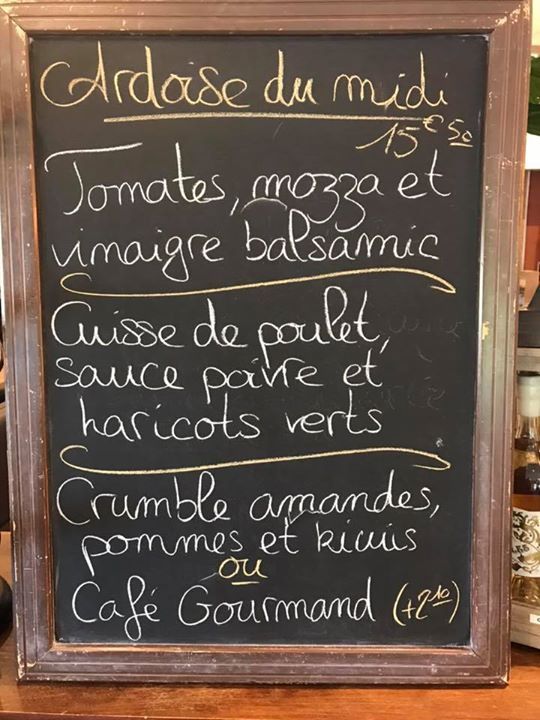 Ardoise du midi
15€50
Tomates, mozza et
vinaigre balsamic
Cuisse de poulet,
sauce poivre et
haricots verts
Crumble amandes,
pommes et kiwis
ou
Café Gourmand (+2€10)